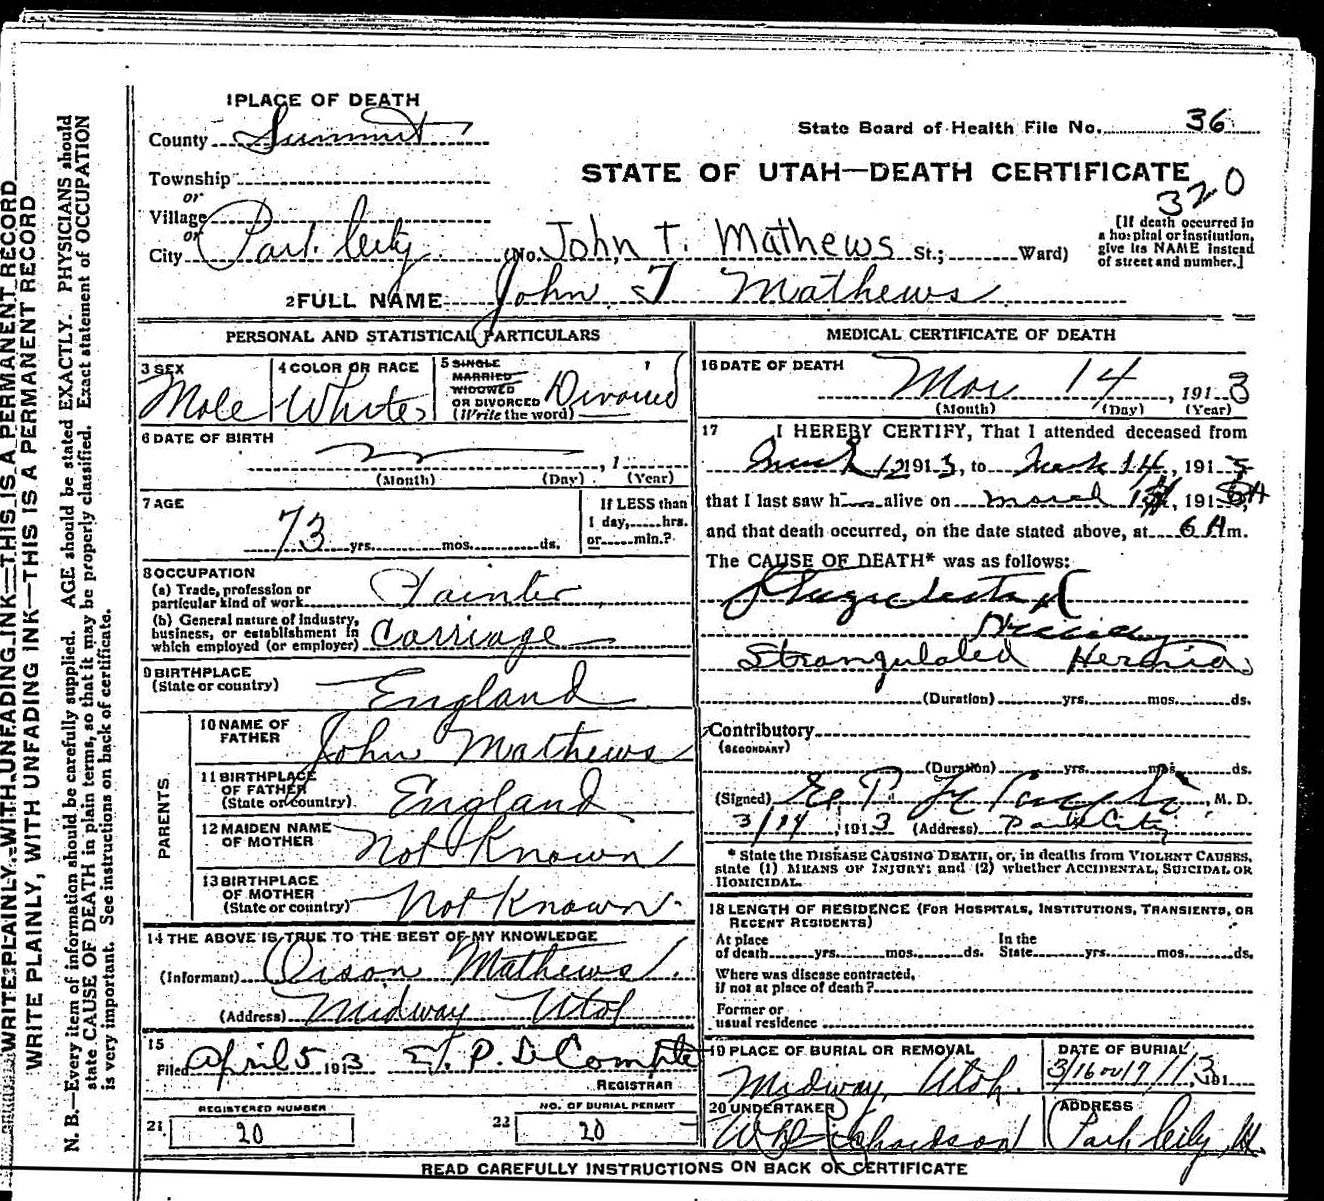 WRITE PLAINLY, WITH UNFADING INK—THIS IS A PERMANENT RECORD
WRITE PLAINLY, WITH UNFADING INK—THIS IS A PERMANENT RECORD
N. B.—Every item of information should be carefully supplied. AGE should be stated EXACTLY. PHYSICIANS should
state CAUSE OF DEATH in plain terms, so that it may be properly classified. Exact statement of OCCUPATION
is very important. See instructions on back of certificate.
1 PLACE OF DEATH
County Summit
State Board of Health File No. 36
Township
or
Village
or
City Park City
STATE OF UTAH—DEATH CERTIFICATE
320
(No. John T. Mathews St.; Ward)
[If death occurred in
a hospital or institution,
give its NAME instead
of street and number.]
2 FULL NAME John T Mathews
PERSONAL AND STATISTICAL PARTICULARS
3 SEX
Male
4 COLOR OR RACE
White
5 SINGLE
MARRIED
WIDOWED
OR DIVORCED
(Write the word)
Divorced
6 DATE OF BIRTH
, 1
(Month) (Day) (Year)
7 AGE
73 yrs. mos. ds.
If LESS than
1 day, hrs.
or min.?
8 OCCUPATION
(a) Trade, profession or
particular kind of work
Painter
(b) General nature of industry,
business, or establishment in
which employed (or employer)
Carriage
9 BIRTHPLACE
(State or country)
England
PARENTS
10 NAME OF
FATHER
John Mathews
11 BIRTHPLACE
OF FATHER
(State or country)
England
12 MAIDEN NAME
OF MOTHER
Not Known
13 BIRTHPLACE
OF MOTHER
(State or country)
Not Known
14 THE ABOVE IS TRUE TO THE BEST OF MY KNOWLEDGE
(Informant) Orson Mathews
(Address) Midway Utah
15
Filed April 5 1913 E. P. Le Compte
REGISTRAR
REGISTERED NUMBER
21 20
NO. OF BURIAL PERMIT
22 20
MEDICAL CERTIFICATE OF DEATH
16 DATE OF DEATH
Mar 14, 1913
(Month) (Day) (Year)
17 I HEREBY CERTIFY, That I attended deceased from
March 12 1913, to March 14, 1913
that I last saw h alive on March, 191
and that death occurred, on the date stated above, at 6 A m.
The CAUSE OF DEATH* was as follows:
Strangulated Hernia
(Duration) yrs. mos. ds.
Contributory
(SECONDARY)
(Duration) yrs. mos. ds.
(Signed) E. P. Le Compte, M. D.
3/14, 1913 (Address) Park City
* State the DISEASE CAUSING DEATH, or, in deaths from VIOLENT CAUSES,
state (1) MEANS OF INJURY; and (2) whether ACCIDENTAL, SUICIDAL OR
HOMICIDAL.
18 LENGTH OF RESIDENCE (FOR HOSPITALS, INSTITUTIONS, TRANSIENTS, OR
RECENT RESIDENTS)
At place
of death yrs. mos. ds.
In the
State yrs. mos. ds.
Where was disease contracted,
if not at place of death?
Former or
usual residence
19 PLACE OF BURIAL OR REMOVAL
Midway, Utah.
DATE OF BURIAL
3/16 or 17/13, 191
20 UNDERTAKER
W Richardson
ADDRESS
Park City, U.
READ CAREFULLY INSTRUCTIONS ON BACK OF CERTIFICATE